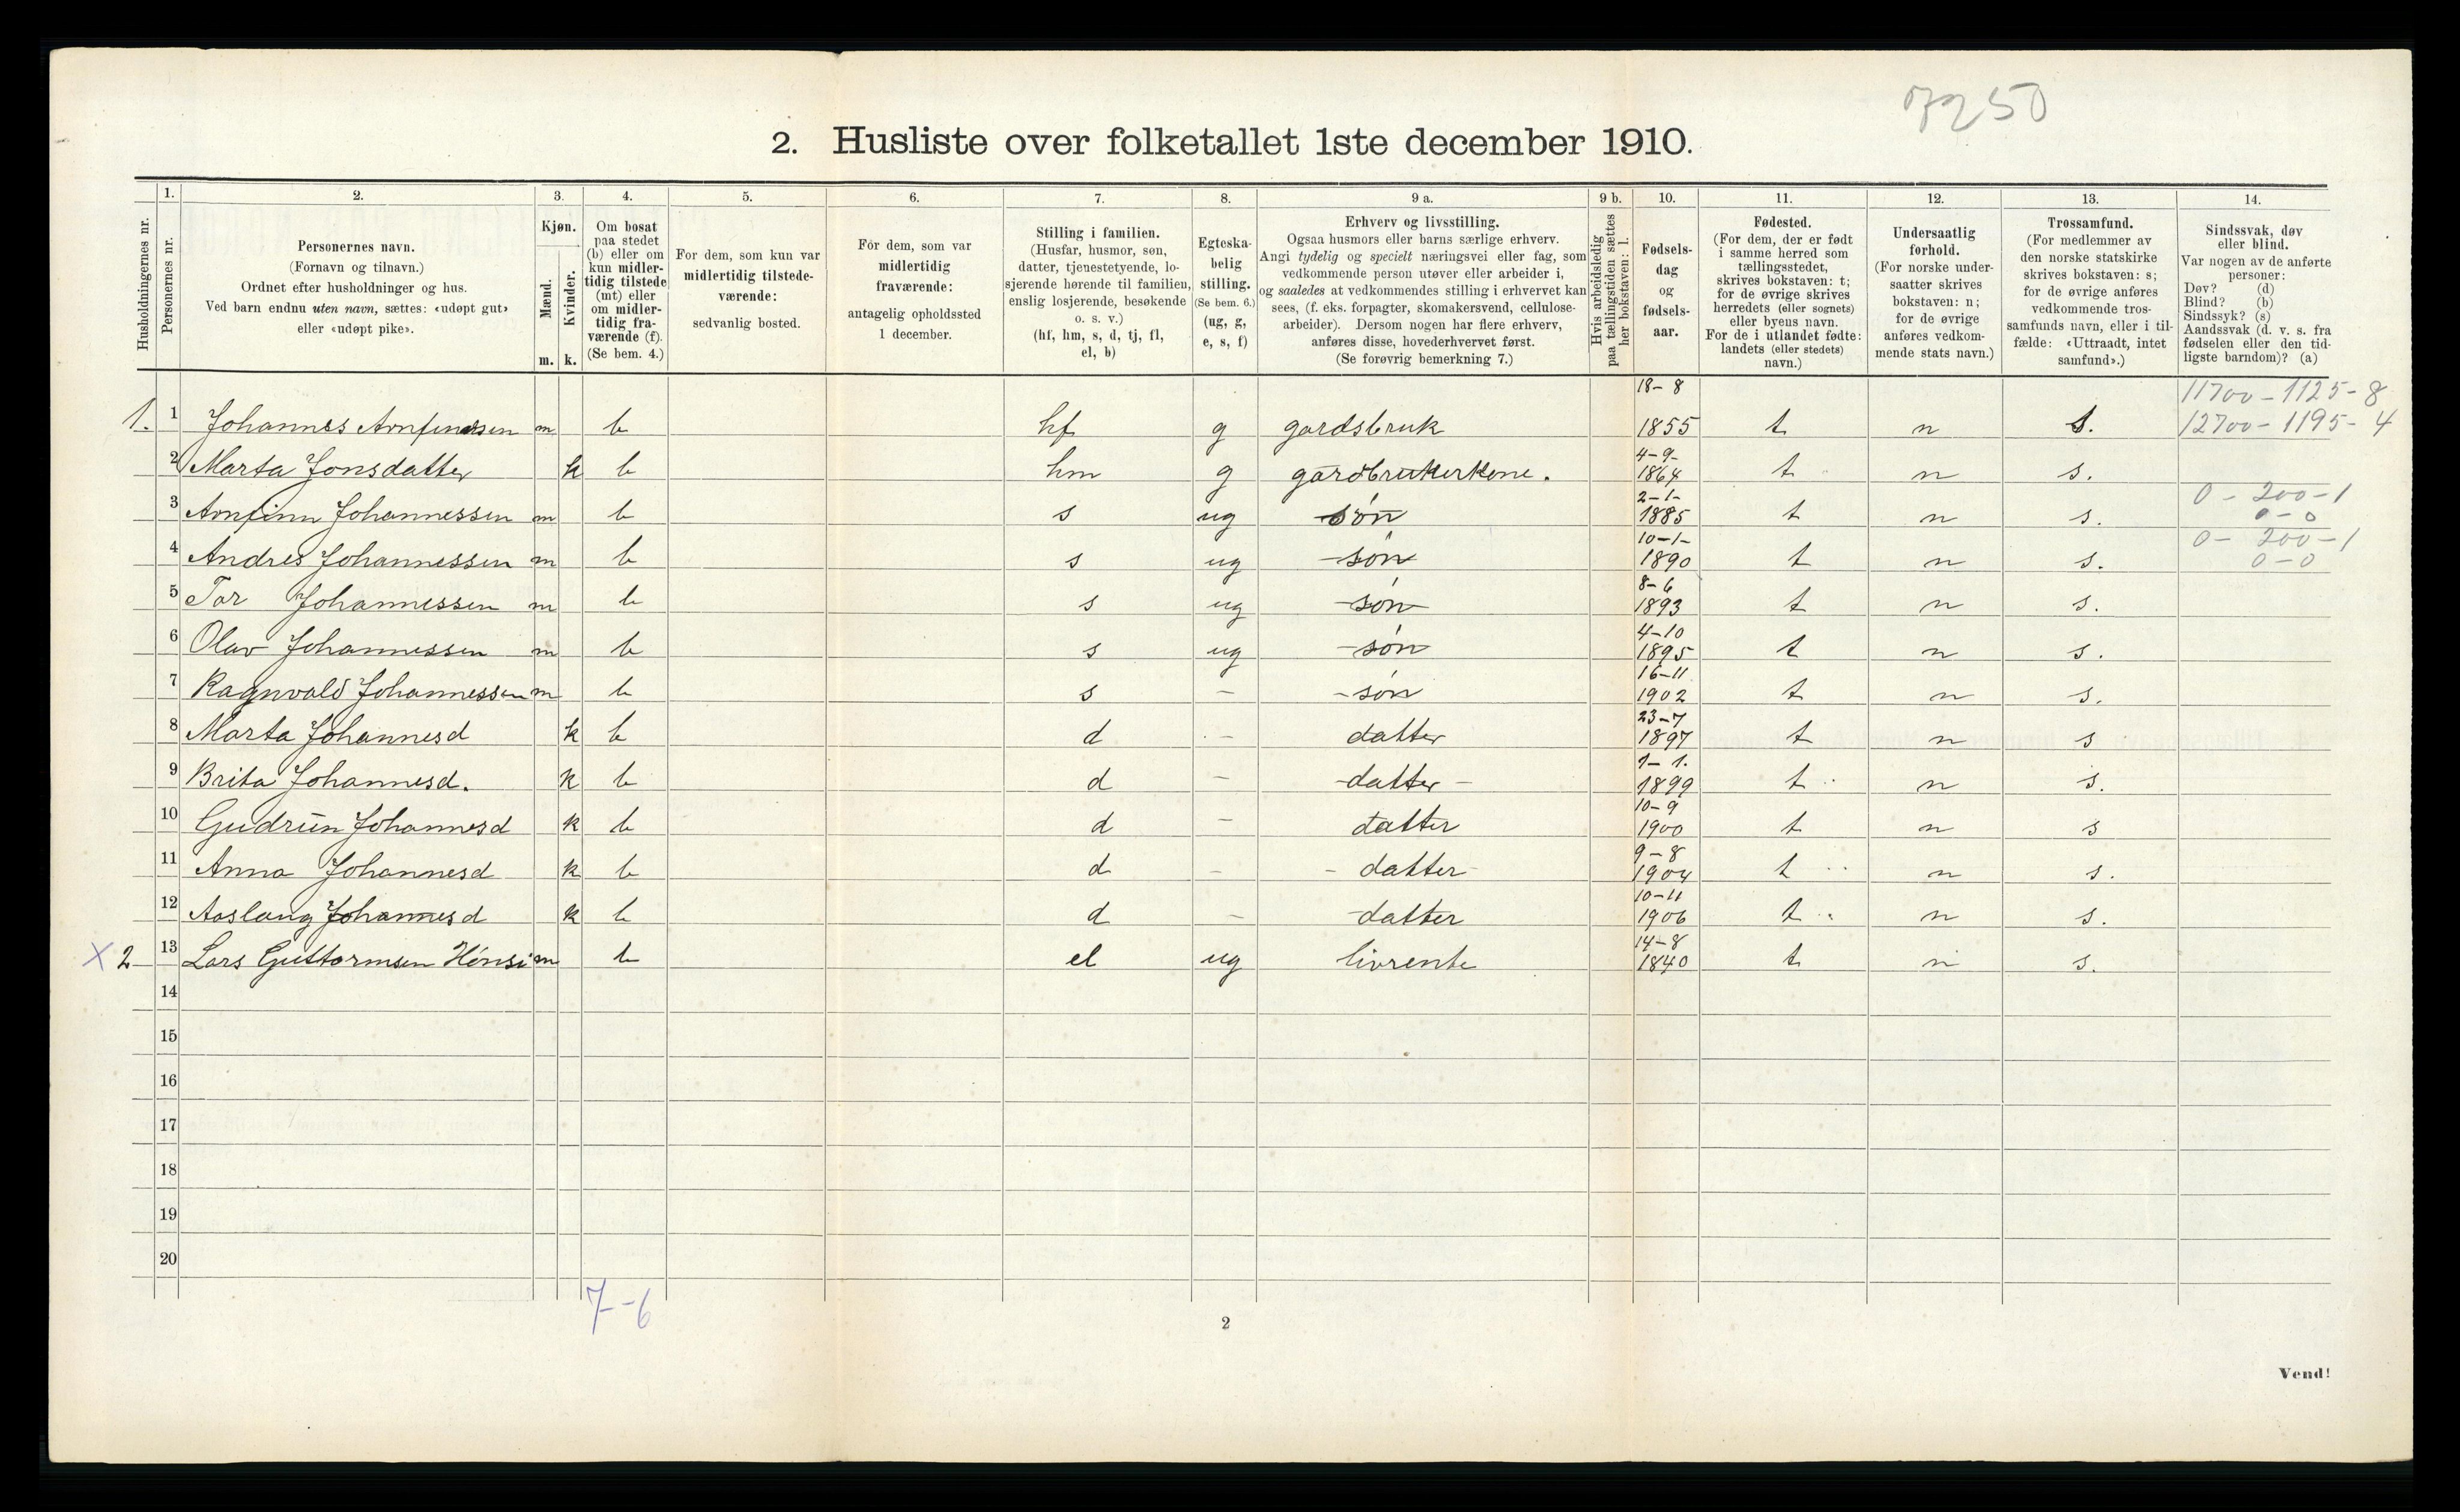 7250
2. Husliste over folketallet 1ste december 1910.
Husholdningernes nr.
1.
Personernes nr.
2.
Personernes navn.
(Fornavn og tilnavn.)
Ordnet efter husholdninger og hus.
Ved barn endnu uten navn, sættes: «udøpt gut»
eller «udøpt pike».
3.
Kjøn.
Mænd.
Kvinder.
m. k.
4.
Om bosat
paa stedet
(b) eller om
kun midler-
tidig tilstede
(mt) eller
om midler-
tidig fra-
værende (f).
(Se bem. 4.)
5.
For dem, som kun var
midlertidig tilstede-
værende:
sedvanlig bosted.
6.
For dem, som var
midlertidig
fraværende:
antagelig opholdssted
1 december.
7.
Stilling i familien.
(Husfar, husmor, søn,
datter, tjenestetyende, lo-
sjerende hørende til familien,
enslig losjerende, besøkende
o. s. v.)
(hf, hm, s, d, tj, fl,
el, b)
8.
Egteska-
belig
stilling.
(Se bem. 6.)
(ug, g,
e, s, f)
9 a.
Erhverv og livsstilling.
Ogsaa husmors eller barns særlige erhverv.
Angi tydelig og specielt næringsvei eller fag, som
vedkommende person utøver eller arbeider i,
og saaledes at vedkommendes stilling i erhvervet kan
sees, (f. eks. forpagter, skomakersvend, cellulose-
arbeider). Dersom nogen har flere erhverv,
anføres disse, hovederhvervet først.
(Se forøvrig bemerkning 7.)
9 b.
Hvis arbeidsledig
paa tællingstiden sættes
her bokstaven: l.
10.
Fødsels-
dag
og
fødsels-
aar.
11.
Fødested.
(For dem, der er født
i samme herred som
tællingsstedet,
skrives bokstaven: t;
for de øvrige skrives
herredets (eller sognets)
eller byens navn.
For de i utlandet fødte:
landets (eller stedets)
navn.)
12.
Undersaatlig
forhold.
(For norske under-
saatter skrives
bokstaven: n;
for de øvrige
anføres vedkom-
mende stats navn.)
13.
Trossamfund.
(For medlemmer av
den norske statskirke
skrives bokstaven: s;
for de øvrige anføres
vedkommende tros-
samfunds navn, eller i til-
fælde: «Uttraadt, intet
samfund».)
14.
Sindssvak, døv
eller blind.
Var nogen av de anførte
personer:
Døv? (d)
Blind? (b)
Sindssyk? (s)
Aandssvak (d. v. s. fra
fødselen eller den tid-
ligste barndom)? (a)
1. 1 Johannes Arnfinnssen m b hf g gardsbruk 18-8 1855 t n s. 11700-1125-8 12700-1195-4
2 Marta Jonsdatter k b hm g gardbrukerkone. 4-9- 1864 t n s.
3 Arnfinn Johannessen m b s ug søn 2-1- 1885 t n s. 0-200-1 0-0
4 Andres Johannessen m b s ug -søn 10-1- 1890 t n s. 0-200-1 0-0
5 Tor Johannessen m b s ug -søn- 8-6 1893 t n s.
6 Olav Johannessen m b s ug -søn 4-10 1895 t n s.
7 Ragnvald Johannessen m b s - -søn 16-11 1902 t n s.
8 Marta Johannesd k b d - datter 23-7 1897 t n s
9 Brita Johannesd. k b d - -datter- 1-1. 1899 t n s.
10 Gudrun Johannesd k b d - datter 10-9 1900 t n s
11 Anna Johannesd k b d - -datter- 9-8 1904 t n s.
12 Aaslaug Johannesd k b d - -datter 10-11 1906 t n s.
X 2 13 Lars Guttormsen Hönsi m b el ug livrente 14-8 1840 t n s.
14
15
16
17
18
19
20
7-6
2
Vend!